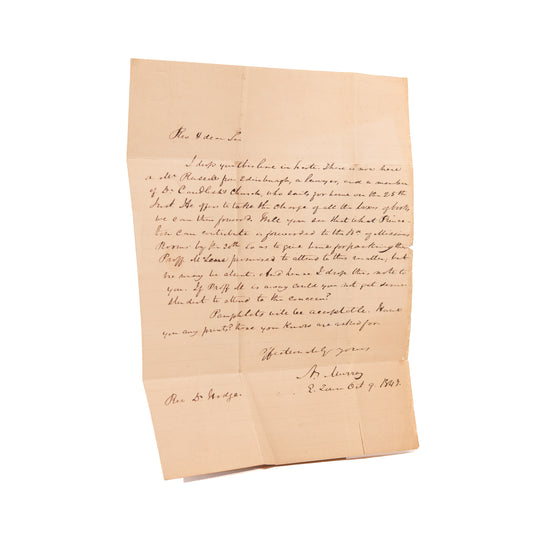 Rev & dear Sir
I drop you this line in haste. There is now here
a Mr Russell from Edinburgh, a lawyer, and a member
of Dr Candlish's Church, who sails for home on the 25th
Inst. He offers to take the charge of all the boxes of books
we can then forward. Will you see that what Prince-
ton can contribute is forwarded to the of Missions
Rooms by the 20th so as to give time for packing them
Proff McLean promised to attend to this matter, but
he may be absent. And hence I drop this note to
you. If Proff M is away could you not get some
student to attend to the concern?
Pamphlets will be acceptable. Have
you any more? those you know are asked for
Affectionately yours
N. Murray
E. Town Oct 9. 1843.
Rev Dr Hodge